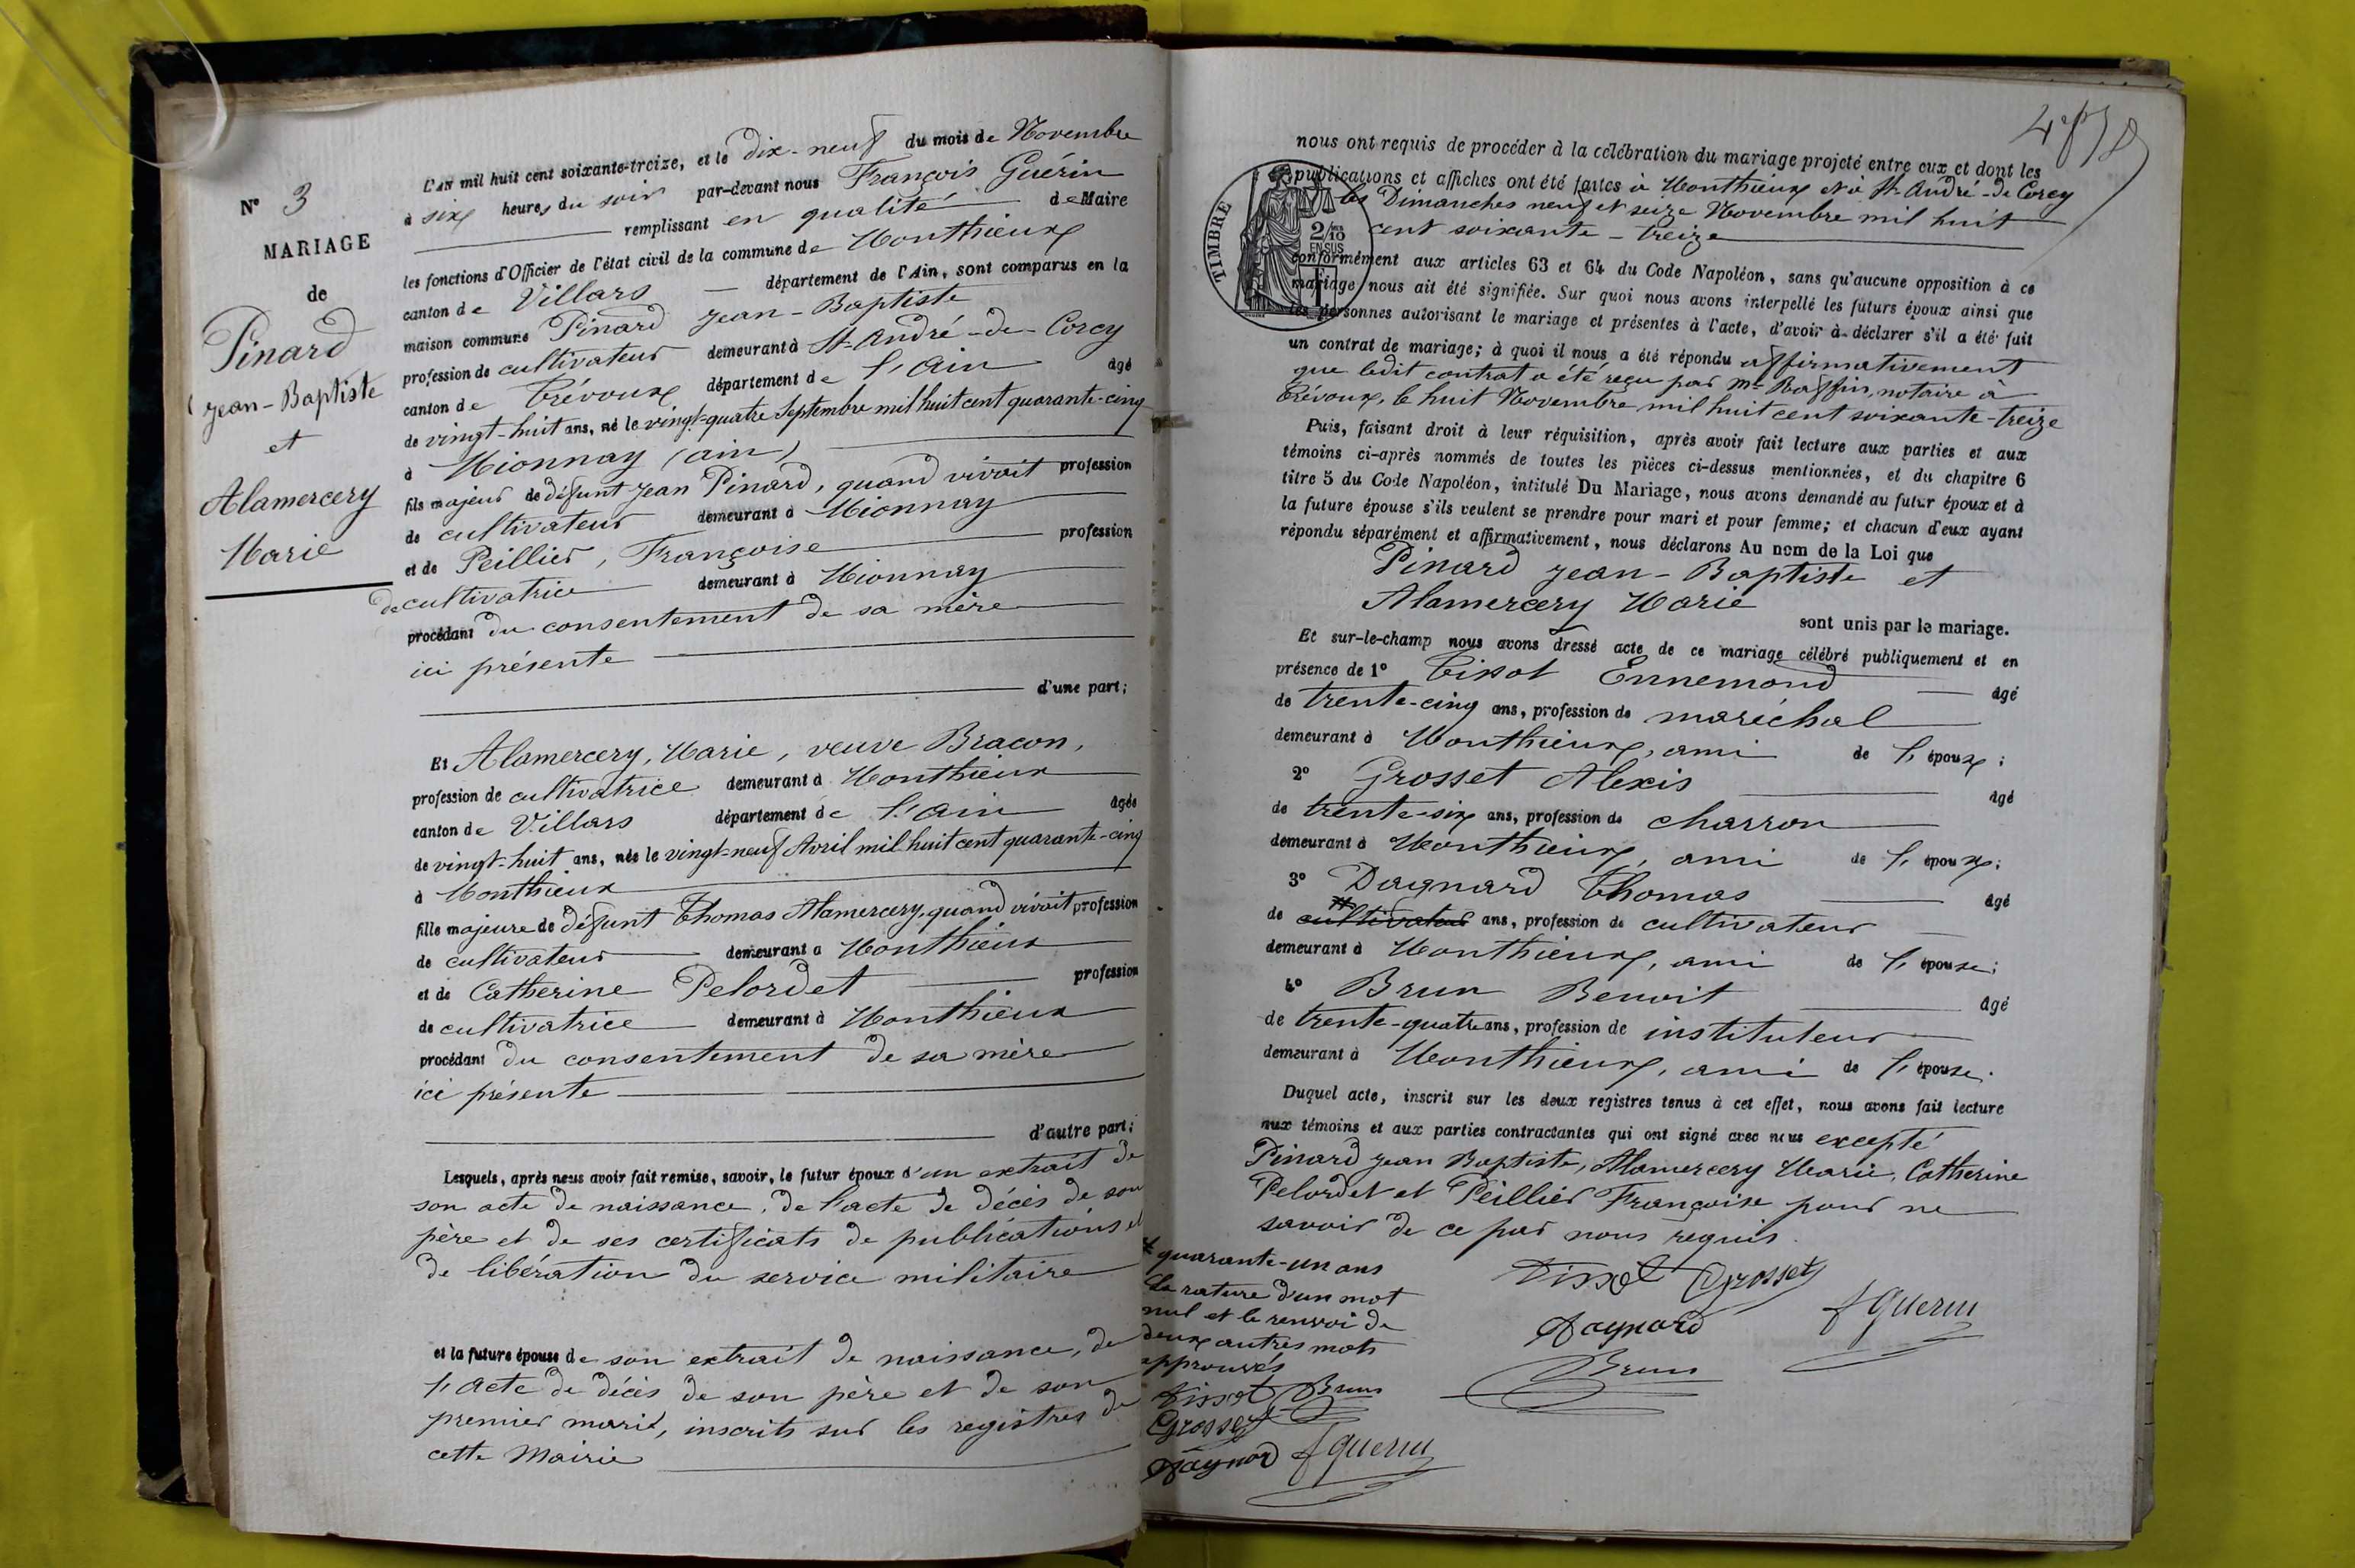 N° 3
MARIAGE
de
Pinard
Jean-Baptiste
et
Alamercery
Marie
L'AN mil huit cent soixante-treize, et le dix-neuf du mois de Novembre
à six heures du soir par-devant nous François Guérin
remplissant en qualité de Maire
les fonctions d'Officier de l'état civil de la commune de Monthieux
canton de Villars département de l'Ain, sont comparus en la
maison commune Pinard Jean-Baptiste
profession de cultivateur demeurant à St-André-de-Corcy
canton de Trévoux département de l'Ain âgé
de vingt-huit ans, né le vingt-quatre Septembre mil huit cent quarante-cinq
à Mionnay (Ain)
fils majeur de défunt Jean Pinard, quand vivait profession
de cultivateur demeurant à Mionnay
et de Peillier, Françoise profession
de cultivatrice demeurant à Mionnay
procédant du consentement de sa mère
ici présente
d'une part;
Et Alamercery, Marie, veuve Bracon,
profession de cultivatrice demeurant à Monthieux
canton de Villars département de l'Ain âgée
de vingt-huit ans, née le vingt-neuf Avril mil huit cent quarante-cinq
à Monthieux
fille majeure de défunt Thomas Alamercery, quand vivait profession
de cultivateur demeurant à Monthieux
et de Catherine Pelordet profession
de cultivatrice demeurant à Monthieux
procédant du consentement de sa mère
ici présente
d'autre part;
Lesquels, après nous avoir fait remise, savoir, le futur époux d'un extrait de
son acte de naissance, de l'acte de décès de son
père et de ses certificats de publications et
de libération du service militaire
et la future épouse de son extrait de naissance, de
l'acte de décès de son père et de son
premier mari, inscrits sur les registres de
cette Mairie
nous ont requis de procéder à la célébration du mariage projeté entre eux et dont les
publications et affiches ont été faites à Monthieux et à St-André-de-Corcy
les Dimanches neuf et seize Novembre mil huit
cent soixante-treize
TIMBRE
2/10
EN SUS
conformément aux articles 63 et 64 du Code Napoléon, sans qu'aucune opposition à ce
mariage nous ait été signifiée. Sur quoi nous avons interpellé les futurs époux ainsi que
les personnes autorisant le mariage et présentes à l'acte, d'avoir à déclarer s'il a été fait
un contrat de mariage; à quoi il nous a été répondu affirmativement
que ledit contrat a été reçu par Me Baffin, notaire à
Trévoux, le huit Novembre mil huit cent soixante-treize
Puis, faisant droit à leur réquisition, après avoir fait lecture aux parties et aux
témoins ci-après nommés de toutes les pièces ci-dessus mentionnées, et du chapitre 6
titre 5 du Code Napoléon, intitulé Du Mariage, nous avons demandé au futur époux et à
la future épouse s'ils veulent se prendre pour mari et pour femme; et chacun d'eux ayant
répondu séparément et affirmativement, nous déclarons Au nom de la Loi que
Pinard Jean-Baptiste et
Alamercery Marie
sont unis par le mariage.
Et sur-le-champ nous avons dressé acte de ce mariage célébré publiquement et en
présence de 1° Tissot Ennemond âgé
de trente-cinq ans, profession de maréchal
demeurant à Monthieux, ami de l'époux;
2° Grosset Alexis âgé
de trente-six ans, profession de charron
demeurant à Monthieux, ami de l'époux;
3° Dagnard Thomas âgé
de # cultivateur ans, profession de cultivateur
demeurant à Monthieux, ami de l'épouse;
4° Brun Benoit âgé
de trente-quatre ans, profession de instituteur
demeurant à Monthieux, ami de l'épouse.
Duquel acte, inscrit sur les deux registres tenus à cet effet, nous avons fait lecture
aux témoins et aux parties contractantes qui ont signé avec nous excepté
Pinard Jean Baptiste, Alamercery Marie, Catherine
Pelordet et Peillier Françoise pour ne
savoir de ce par nous requis.
# quarante-un ans
La rature d'un mot
nul et le renvoi de
deux autres mots
approuvés
Tissot Brun
Grosset
Dagnard f guerin
Tissot Grosset
Dagnard f guerin
Brun